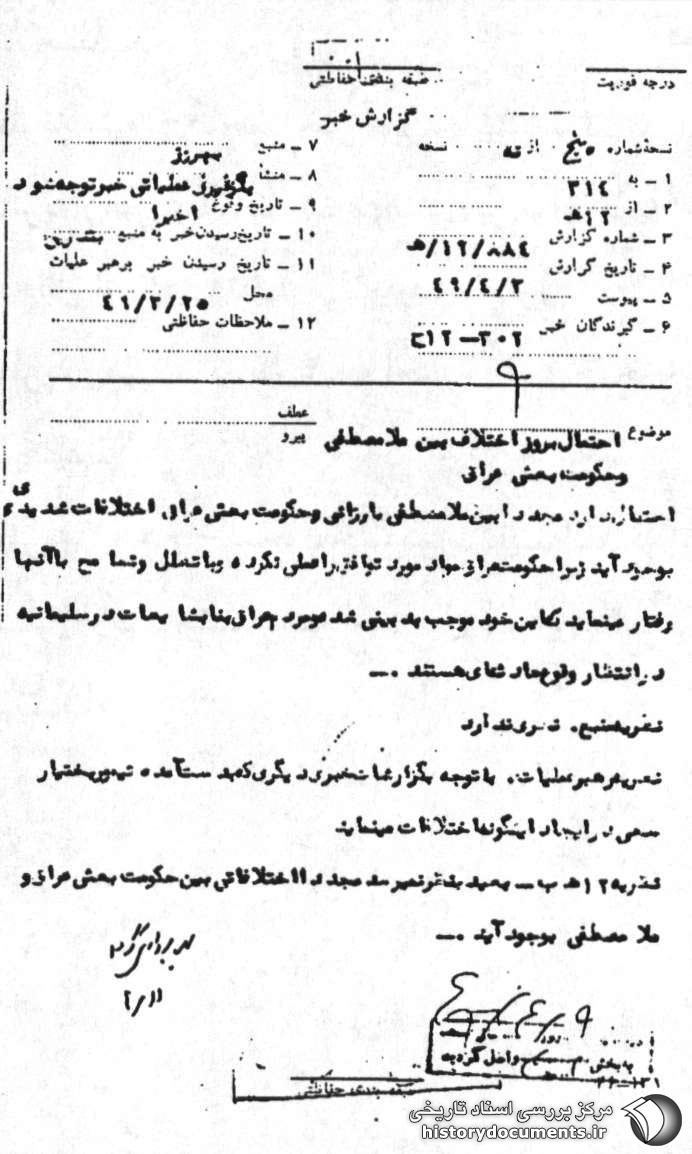 طبقه بندی حفاظتی
درجه فوریت
گزارش خبر
نسخهٔ شماره پنج از نه نسخه
۱ ـ به ۳۱۴
۲ ـ از ۱۲ هـ
۳ ـ شماره گزارش ۱۲/۸۸۴/هـ
۴ ـ تاریخ گزارش ۴۹/۴/۳
۵ ـ پیوست
۶ ـ گیرندگان خبر ۳۰۲ــ۱۲ح
۷ ـ منبع بهرزز
۸ ـ منشأ عملیاتی خبر توجه شود
۹ ـ تاریخ وقوع اخیرا
۱۰ ـ تاریخ رسیدن خبر به منبع بتدریج
۱۱ ـ تاریخ رسیدن خبر برهبر عملیات
محل ۴۹/۳/۲۵
۱۲ ـ ملاحظات حفاظتی
عطف
پیرو
موضوع احتمال بروز اختلاف بین ملامصطفی
وحکومت بعثی عراق
احتمال دارد مجددا بین ملامصطفی بارزانی وحکومت بعثی عراق اختلافات شدیدی
بوجود آید زیرا حکومت عراق مواد مورد توافق را عملی نکرده وبا تعلل وتسامح با آنها
رفتار مینماید که این خود موجب بدبینی شده ومردم عراق بنا بشایعات در سلیمانیه
در انتظار وقوع حادثه‌ای هستند .ــ
نظریه منبع. نظری ندارد
نظریه رهبر عملیات. با توجه بگزارشات خبری دیگری که بدست آمده تیمور بختیار
سعی در ایجاد اینگونه اختلافات مینماید
نظریه ۱۲ هـ ب ــ بعید بنظر نمیرسد مجددا اختلافاتی بین حکومت بعثی عراق و
ملا مصطفی بوجود آید .ــ
۹/۴/
به بخش واصل گردید
طبقه بندی حفاظتی
مرکز بررسی اسناد تاریخی
historydocuments.ir